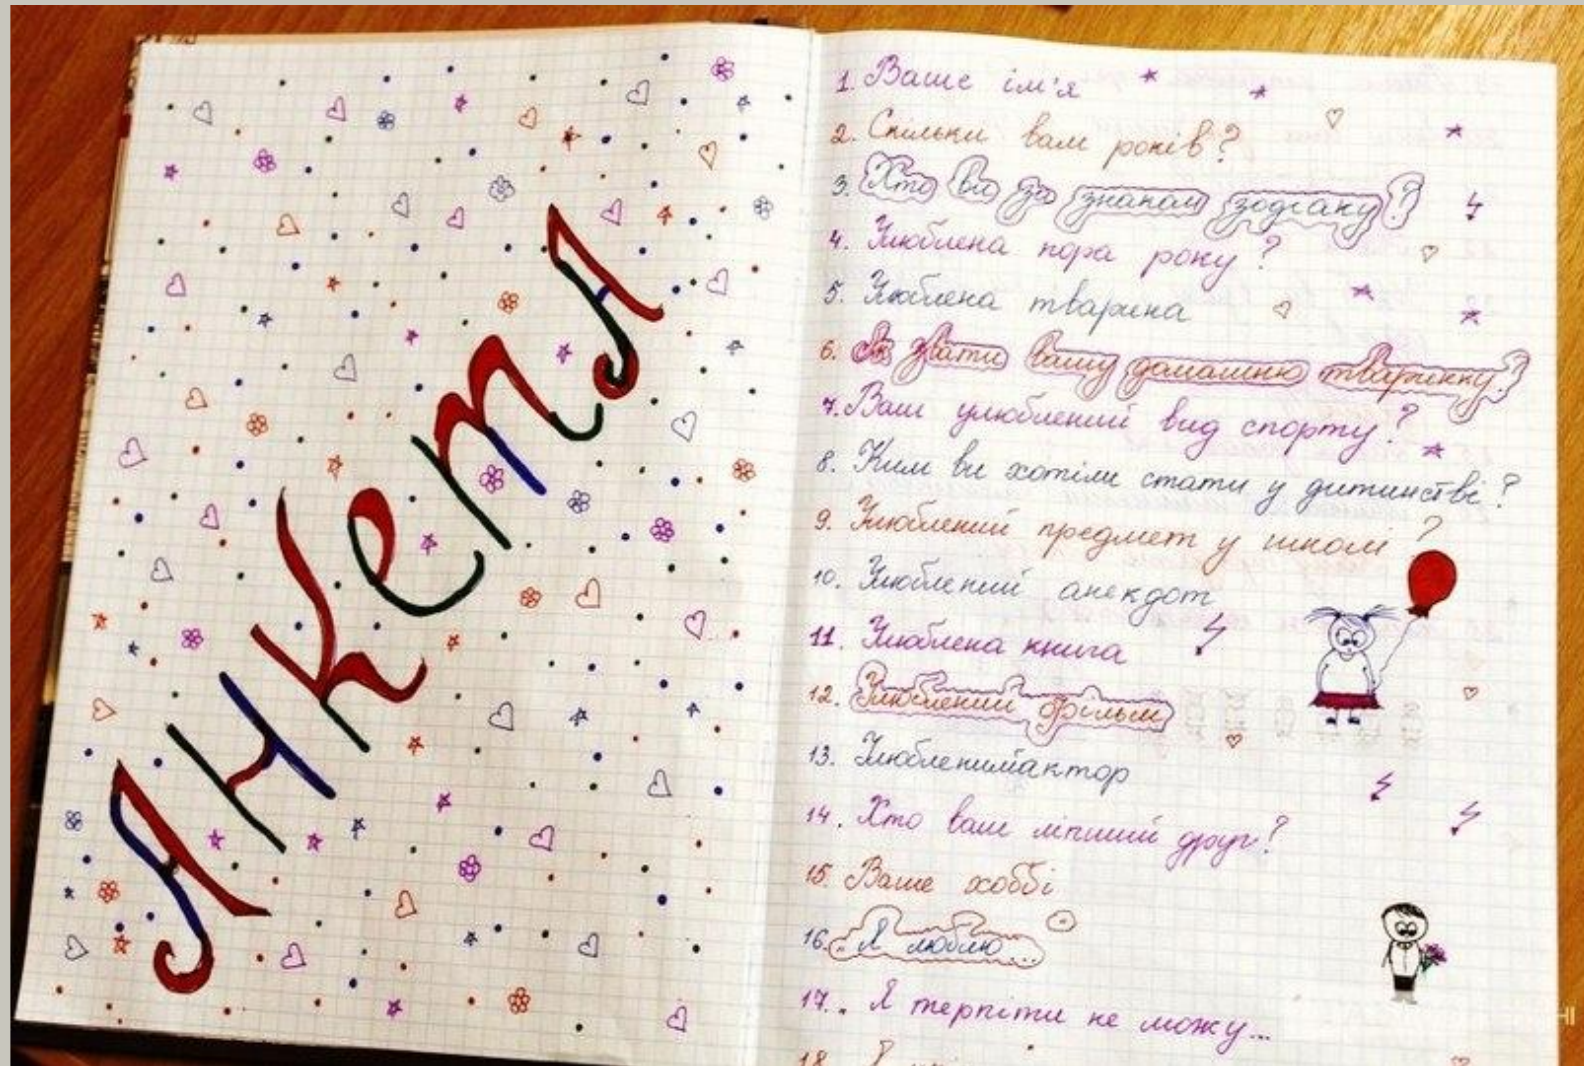 Анкета
1. Ваше ім'я
2. Скільки вам років?
3. Хто ви за знаком зодіаку?
4. Улюблена пора року?
5. Улюблена тварина
6. Як звати вашу домашню тваринку?
7. Ваш улюблений вид спорту?
8. Ким ви хотіли стати у дитинстві?
9. Улюблений предмет у школі?
10. Улюблений анекдот
11. Улюблена книга
12. Улюблений фільм
13. Улюблений актор
14. Хто ваш ліпший друг?
15. Ваше хоббі
16. Я люблю...
17. Я терпіти не можу...
18. Я